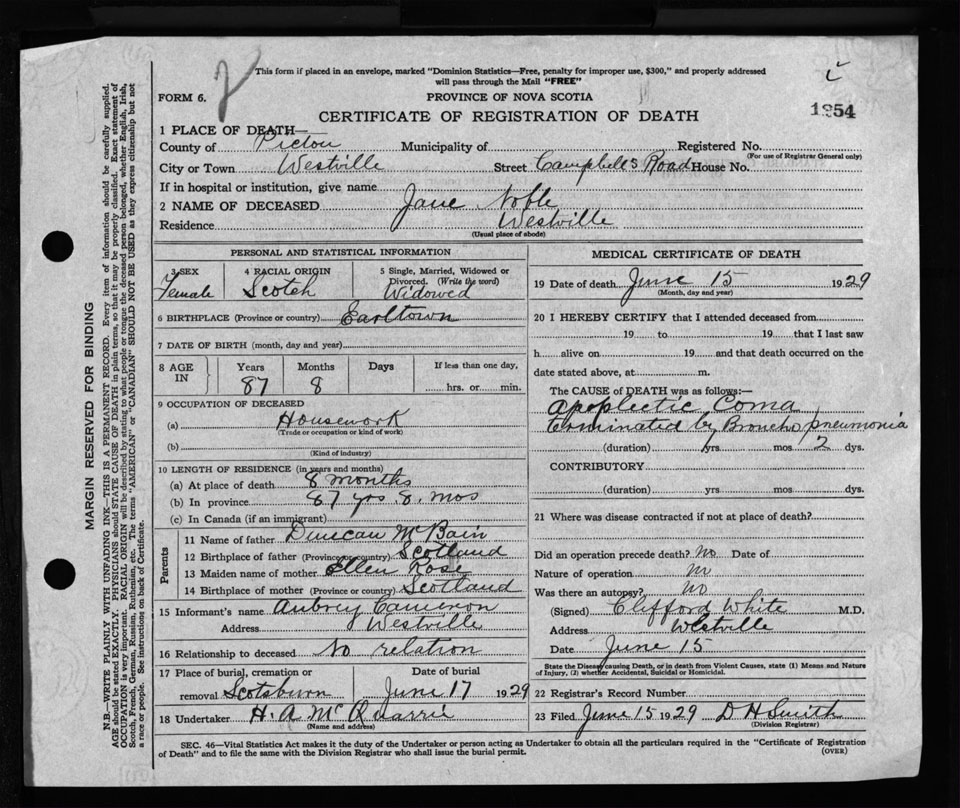 This form if placed in an envelope, marked "Dominion Statistics—Free, penalty for improper use, $300," and properly addressed
will pass through the Mail "FREE"
FORM 6.
PROVINCE OF NOVA SCOTIA
1354
CERTIFICATE OF REGISTRATION OF DEATH
1 PLACE OF DEATH—
County of Pictou Municipality of Registered No.
(For use of Registrar General only)
City or Town Westville Street Campbells Road House No.
If in hospital or institution, give name
2 NAME OF DECEASED Jane Noble
Residence Westville
(Usual place of abode)
PERSONAL AND STATISTICAL INFORMATION
3 SEX 4 RACIAL ORIGIN 5 Single, Married, Widowed or
Divorced. (Write the word)
Female Scotch Widowed
6 BIRTHPLACE (Province or country) Earltown
7 DATE OF BIRTH (month, day and year)
8 AGE IN Years Months Days If less than one day,
87 8 hrs. or min.
9 OCCUPATION OF DECEASED
(a) Housework
(Trade or occupation or kind of work)
(b)
(Kind of industry)
10 LENGTH OF RESIDENCE (in years and months)
(a) At place of death 8 months
(b) In province 87 yrs 8. mos
(c) In Canada (if an immigrant)
Parents
11 Name of father Duncan McBain
12 Birthplace of father (Province or country) Scotland
13 Maiden name of mother Ellen Rose
14 Birthplace of mother (Province or country) Scotland
15 Informant's name Aubrey Cameron
Address Westville
16 Relationship to deceased No relation
17 Place of burial, cremation or Date of burial
removal Scotsburn June 17 1929
18 Undertaker H. A McQuarrie
(Name and address)
MEDICAL CERTIFICATE OF DEATH
19 Date of death June 15 1929
(Month, day and year)
20 I HEREBY CERTIFY that I attended deceased from
19 to 19 that I last saw
h alive on 19 and that death occurred on the
date stated above, at m.
The CAUSE of DEATH was as follows:—
Apoplectic Coma
terminated by Broncho pneumonia
(duration) yrs mos 2 dys.
CONTRIBUTORY
(duration) yrs mos dys.
21 Where was disease contracted if not at place of death?
Did an operation precede death? No Date of
Nature of operation No
Was there an autopsy? No
(Signed) Clifford White M.D.
Address Westville
Date June 15
State the Disease causing Death, or in death from Violent Causes, state (1) Means and Nature
of Injury, (2) whether Accidental, Suicidal or Homicidal.
22 Registrar's Record Number
23 Filed June 15 1929 D H Smith
(Division Registrar)
SEC. 46—Vital Statistics Act makes it the duty of the Undertaker or person acting as Undertaker to obtain all the particulars required in the "Certificate of Registration
of Death" and to file the same with the Division Registrar who shall issue the burial permit. (OVER)
MARGIN RESERVED FOR BINDING
N.B.—WRITE PLAINLY WITH UNFADING INK—THIS IS A PERMANENT RECORD. Every item of information should be carefully supplied.
AGE should be stated EXACTLY. PHYSICIANS should STATE CAUSE OF DEATH in plain terms, so that it may be properly classified. Exact statement of
OCCUPATION is very important. RACIAL ORIGIN will be described by stating to what people or tongue the deceased person belonged, whether English, Irish,
Scotch, French, German, Russian, Ruthenian, etc. The terms "AMERICAN" or "CANADIAN" SHOULD NOT BE USED as they express citizenship but not
a race or people. See instructions on back of Certificate.